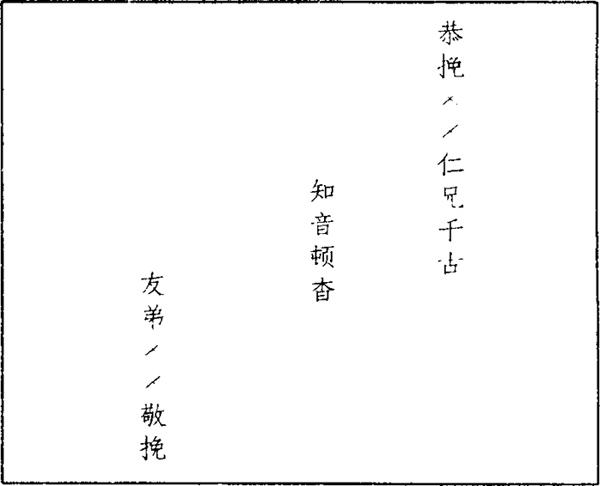 恭挽××仁兄千古
知音顿杳
友弟××敬挽